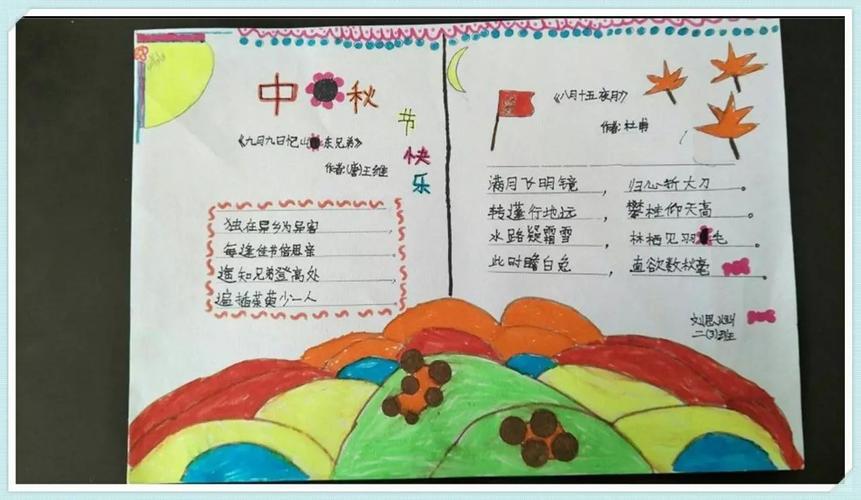 中秋
节
快
乐
《九月九日记山东兄弟》
作者:(唐)王维
独在异乡为异客,
每逢佳节倍思亲
遥知兄弟登高处,
遍插茱萸少一人
《八月十五夜月》
作者:杜甫
满月飞明镜，归心折大刀。
转蓬行地远，攀桂仰天高。
水路疑霜雪，林栖见羽毛。
此时瞻白兔，直欲数秋毫
刘思
二(3)班